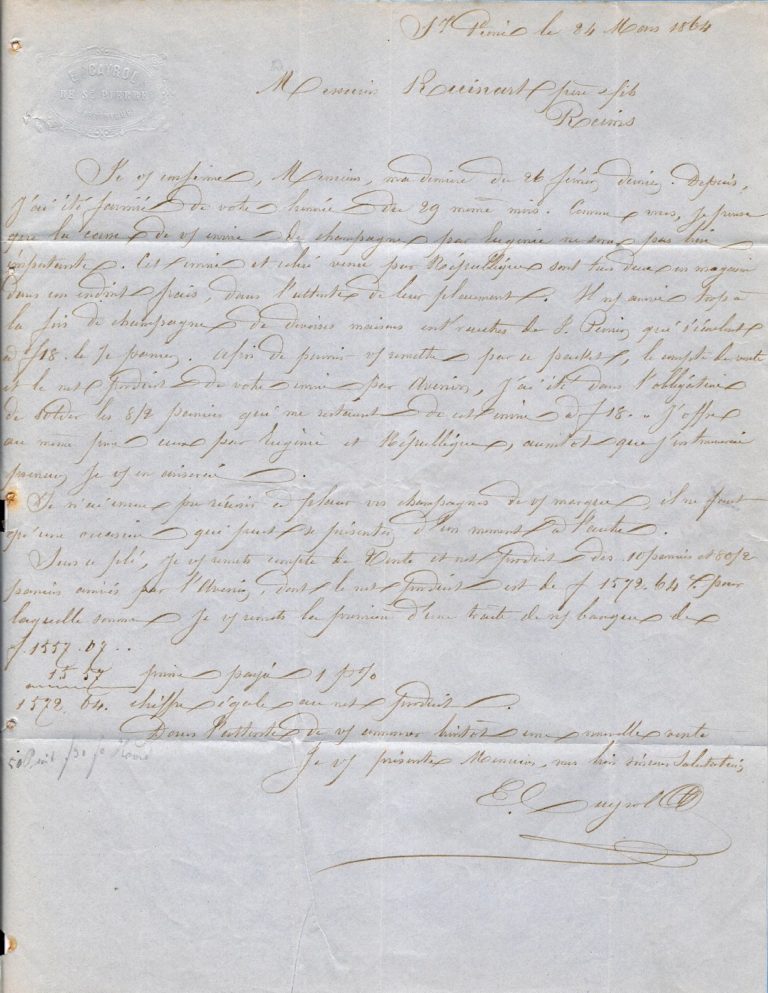 E. CAYROL
DE St PIERRE
MARTINIQUE
St Pierre le 24 Mars 1864
Messieurs Ruinart père & fils
Reims
Je vs confirme, Messieurs, ma dernière du 26 février dernier. Depuis,
j'ai été favorisé de votre honorée du 29 même mois. Comme vous, je pense
que la casse de vs envoi de champagne par Eugénie ne sera pas bien
importante. Cet envoi et celui venu par République sont tous deux en magasin
dans un endroit frais, dans l'attente de leur placement. Il ns arrive trop à
la fois de champagne de diverses maisons entr'autres de J. Perrier qui s'écoulent
à f 18. le panier. Afin de pouvoir vs remettre par ce packet, le compte de vente
et le net produit de votre envoi par Avenir, j'ai été dans l'obligation
de solder les 8/2 paniers qui me restaient de cet envoi à f 18. " J'offre
au même prix ceux par Eugénie et République, aussitôt que j'en trouverai
preneur, je vs en aviserai.
Je n'ai encore pu réussir à placer vos champagnes de vs marque, il ne faut
qu'une occasion qui peut se présenter d'un moment à l'autre.
Sous ce pli, je vs remets compte de Vente et net produit des 10 paniers et 80/2
paniers arrivés par l'Avenir, dont le net produit est de f 1572.64 c pour
laquelle somme je vs remets la première d'une traite de ns banque de
f. 1557.07..
15 57 prime payée 1 p%
1572. 64. chiffre égale au net produit.
Dans l'attente de vs annoncer bientôt une nouvelle vente
Je vs présente Messieurs, mes bien sincères Salutations,
E. Cayrol